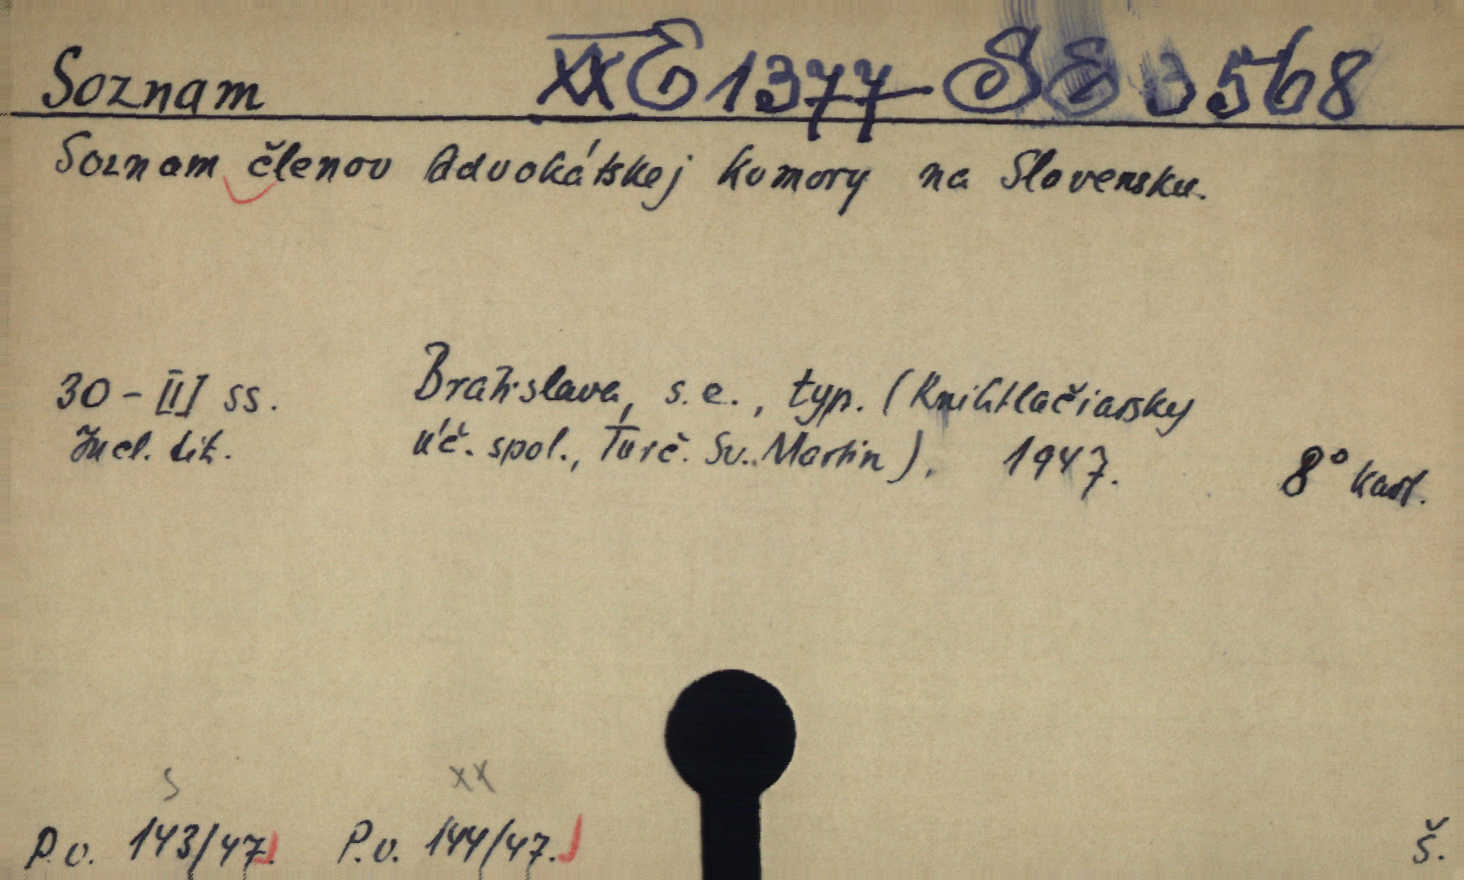 Soznam XX E 1377 - SE 3568
Soznam členov Advokátskej komory na Slovensku.
30 - [II] ss. Bratislava, s. e., typ. (Kníhtlačiarsky
Incl. tit. úč. spol., Turč. Sv. Martin). 1947. 8° kart.
S XX
P.v. 143/47. P.v. 144/47. Š.